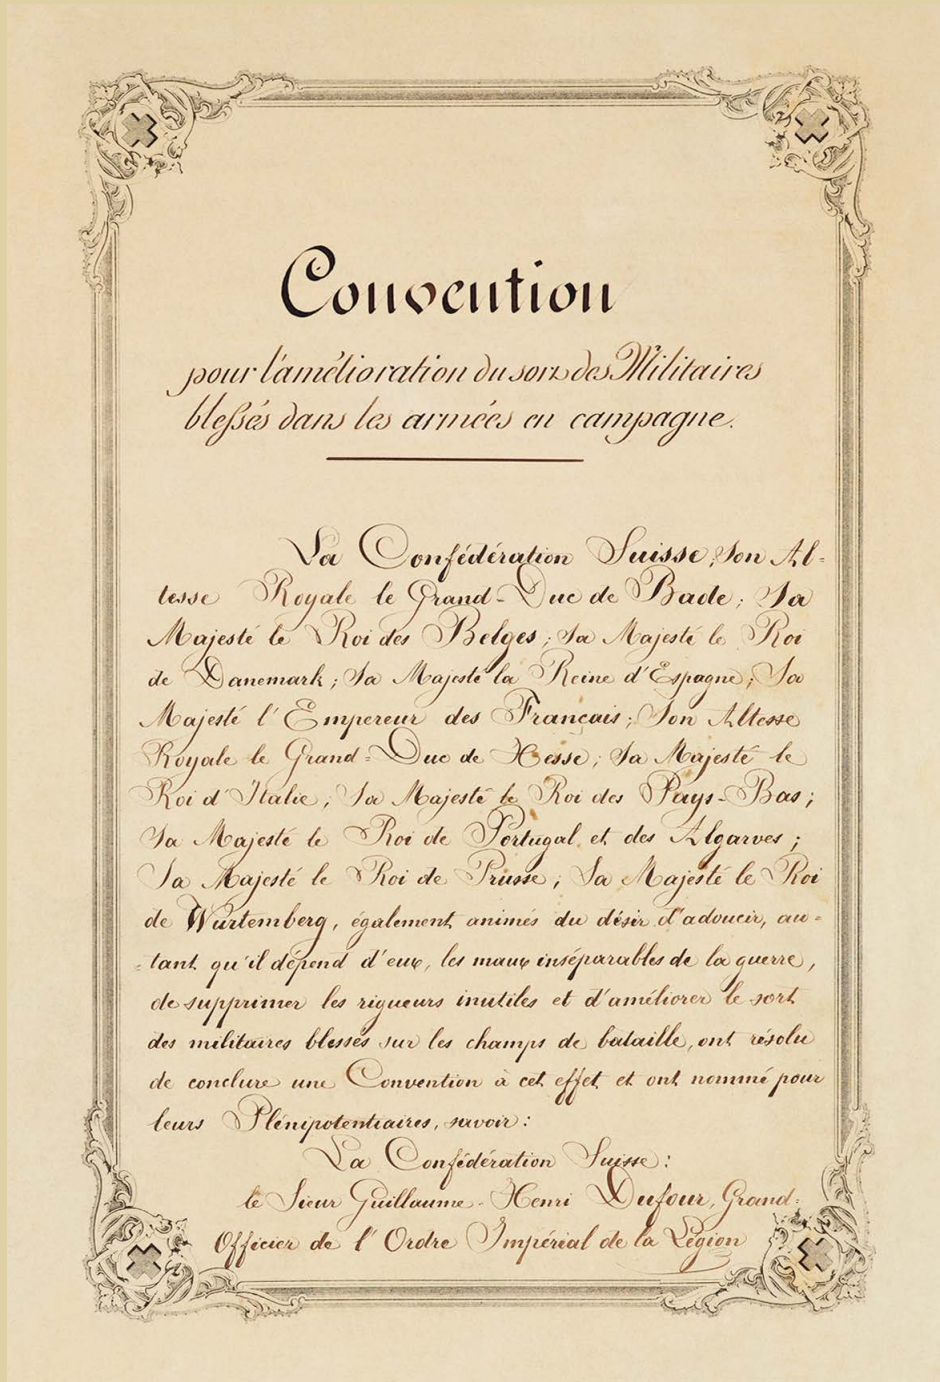 Convention
pour l'amélioration du sort des Militaires
blessés dans les armées en campagne.
La Confédération Suisse; Son Al-
tesse Royale le Grand-Duc de Bade; Sa
Majesté le Roi des Belges; Sa Majesté le Roi
de Danemark; Sa Majesté la Reine d'Espagne; Sa
Majesté l'Empereur des Français; Son Altesse
Royale le Grand-Duc de Hesse; Sa Majesté le
Roi d'Italie; Sa Majesté le Roi des Pays-Bas;
Sa Majesté le Roi de Portugal et des Algarves;
Sa Majesté le Roi de Prusse; Sa Majesté le Roi
de Wurtemberg, également animés du désir d'adoucir, au-
-tant qu'il dépend d'eux, les maux inséparables de la guerre,
de supprimer les rigueurs inutiles et d'améliorer le sort
des militaires blessés sur les champs de bataille, ont résolu
de conclure une Convention à cet effet et ont nommé pour
leurs Plénipotentiaires, savoir:
La Confédération Suisse:
le Sieur Guillaume-Henri Dufour, Grand-
Officier de l'Ordre Impérial de la Légion